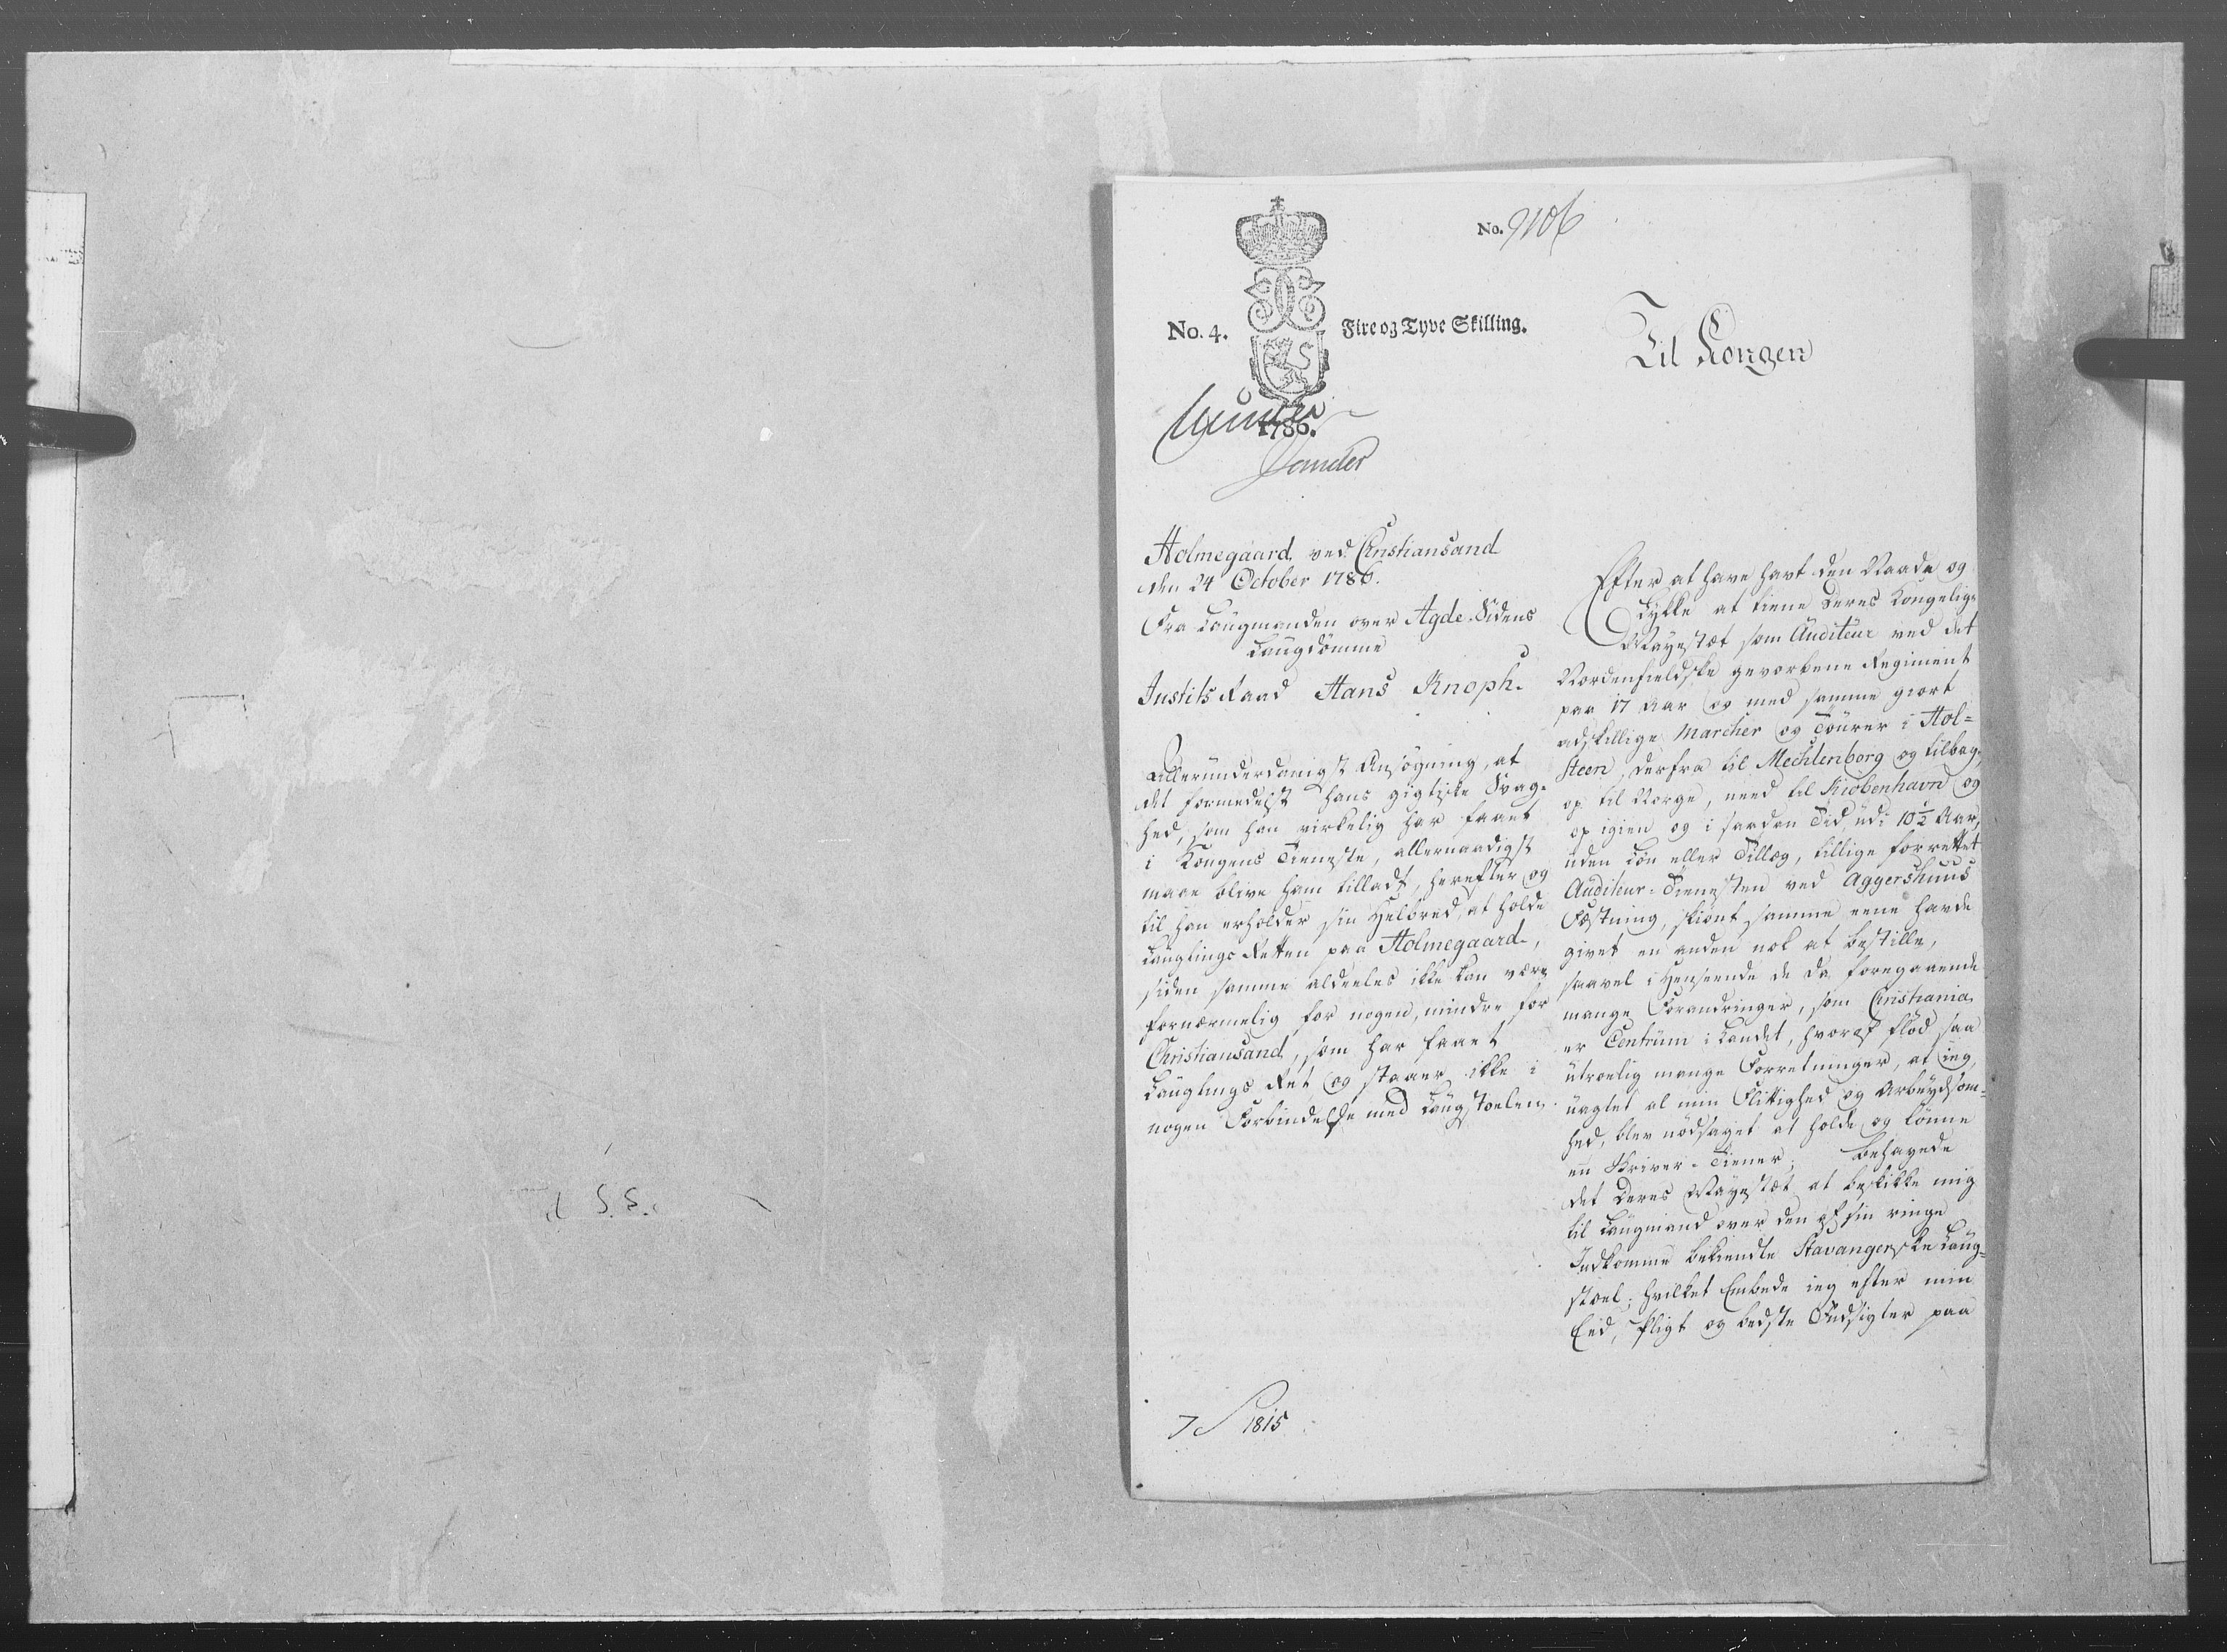 No. 9106
No. 4.
Fire og Tyve Skilling.
1786.
Sander
Til Kongen
Holmegaard ved Christiansand
den 24 October 1786.
Fra Laugmanden over Agde-Sidens
Laugdømme
Justits Raad Hans Knoph.
Allerunderdanigst Ansøgning, at
det formedelst hans gigtiske Svag-
hed, som han virkelig har faaet
i Kongens Tieneste, allernaadigst
maae blive ham tilladt, herefter og
til han erholder sin Helbred, at holde
Laugtings Retten paa Holmegaard,
siden samme aldeeles ikke kan være
fornærmelig for nogen, mindre for
Christiansand, som har faaet
Laugtings Ret og staaer ikke i
nogen Forbindelse med Laugstoelen.
7 1815
Efter at have havt den Naade og
Lykke at tiene Deres Kongelige
Mayestæt som Auditeur ved det
Nordenfieldske gevorbene Regiment
paa 17 Aar og med samme giort
adskillige Marcher og Tourer i Hol=
steen, derfra til Mechlenborg og tilbage,
op til Norge, need til Kiøbenhavn og
op igien og i saadan Tid, udi 10½ Aar,
uden Løn eller Tillæg, tillige forrettet
Auditeur-Tienesten ved Aggershuus
Fæstning, skiønt samme eene havde
givet en anden nok at bestille,
saavel i Henseende de da foregaaende
mange Forandringer, som Christiania
er Centrum i Landet, hvoraf flød saa
utroelig mange Forretninger, at ieg,
uagtet al min Flittighed og Arbeydsom=
hed, blev nødsaget at holde og lønne
en Skriver-Tiener; behagede
det Deres Mayestæt at beskikke mig
til Laugmand over den af sin ringe
Indkomme bekiendte Stavangerske Laug=
stoel; hvilket Embede ieg efter min
Eed, Pligt og bedste Indsigter paa